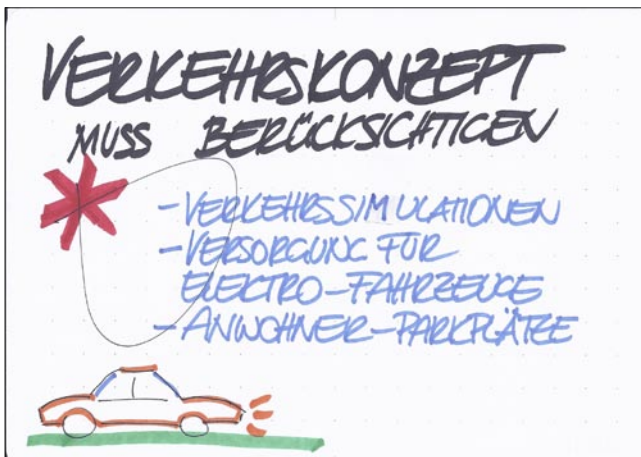 VERKEHRSKONZEPT
MUSS BERÜCKSICHTIGEN
- VERKEHRSSIMULATIONEN
- VERSORGUNG FÜR
ELEKTRO-FAHRZEUGE
- ANWOHNER-PARKPLÄTZE